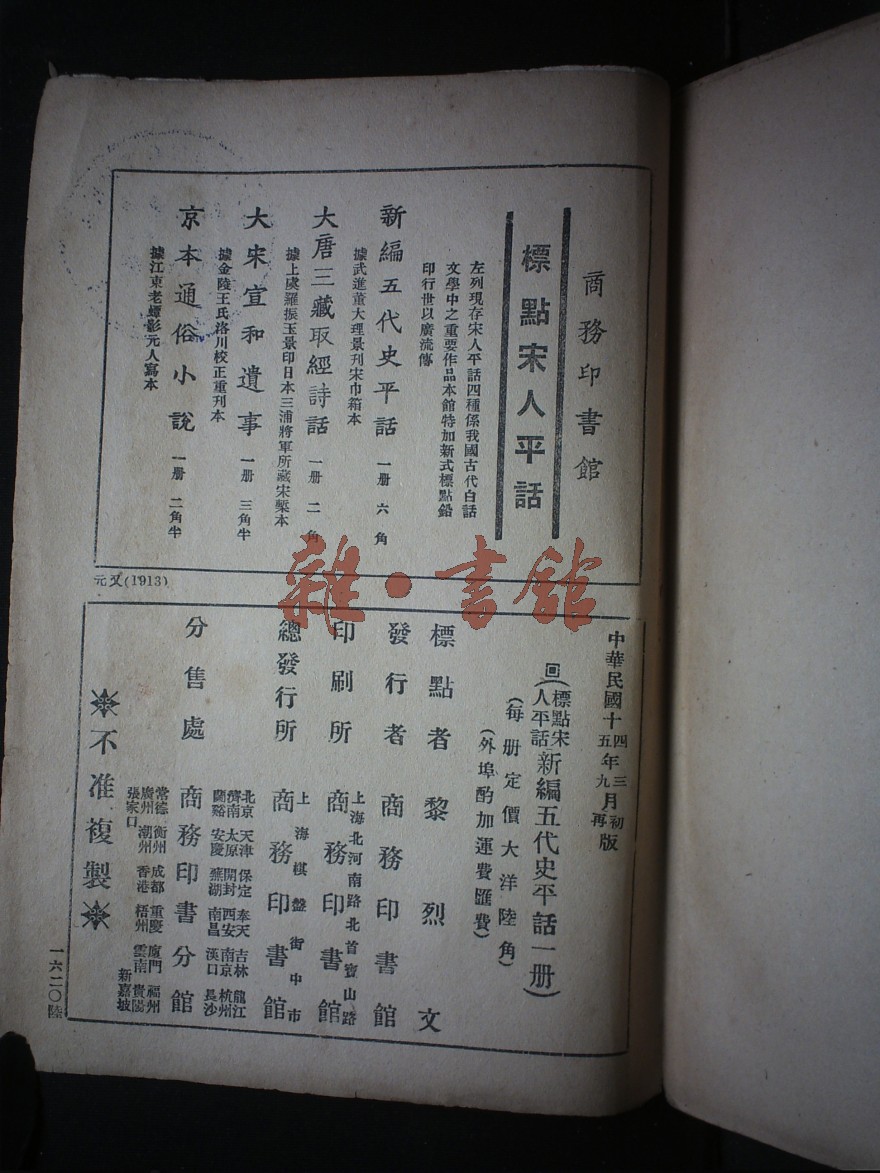 商務印書館
標點宋人平話
左列現存宋人平話四種係我國古代白話
文學中之重要作品本館特加新式標點鉛
印行世以廣流傳
新編五代史平話 一册 六角
據武進董大理景刊宋巾箱本
大唐三藏取經詩話 一册 二角
據上虞羅振玉景印日本三浦將軍所藏宋槧本
大宋宣和遺事 一册 三角半
據金陵王氏洛川校正重刊本
京本通俗小說 一册 二角半
據江東老蟫影元人寫本
元又(1913)
中華民國十四年三月初版
五年九月再版
回(標點宋人平話新編五代史平話一册)
(每册定價大洋陸角)
(外埠酌加運費匯費)
標點者 黎烈文
發行者 商務印書館
印刷所 上海北河南路北首寶山路 商務印書館
總發行所 上海棋盤街中市 商務印書館
分售處 商務印書分館
北京 天津 保定 奉天 吉林 龍江
濟南 太原 開封 西安 南京 杭州
蘭谿 安慶 蕪湖 南昌 漢口 長沙
常德 衡州 成都 重慶 廈門 福州
廣州 潮州 香港 梧州 雲南 貴陽
張家口 新嘉坡
不准複製
一六二〇陸
雜·書館